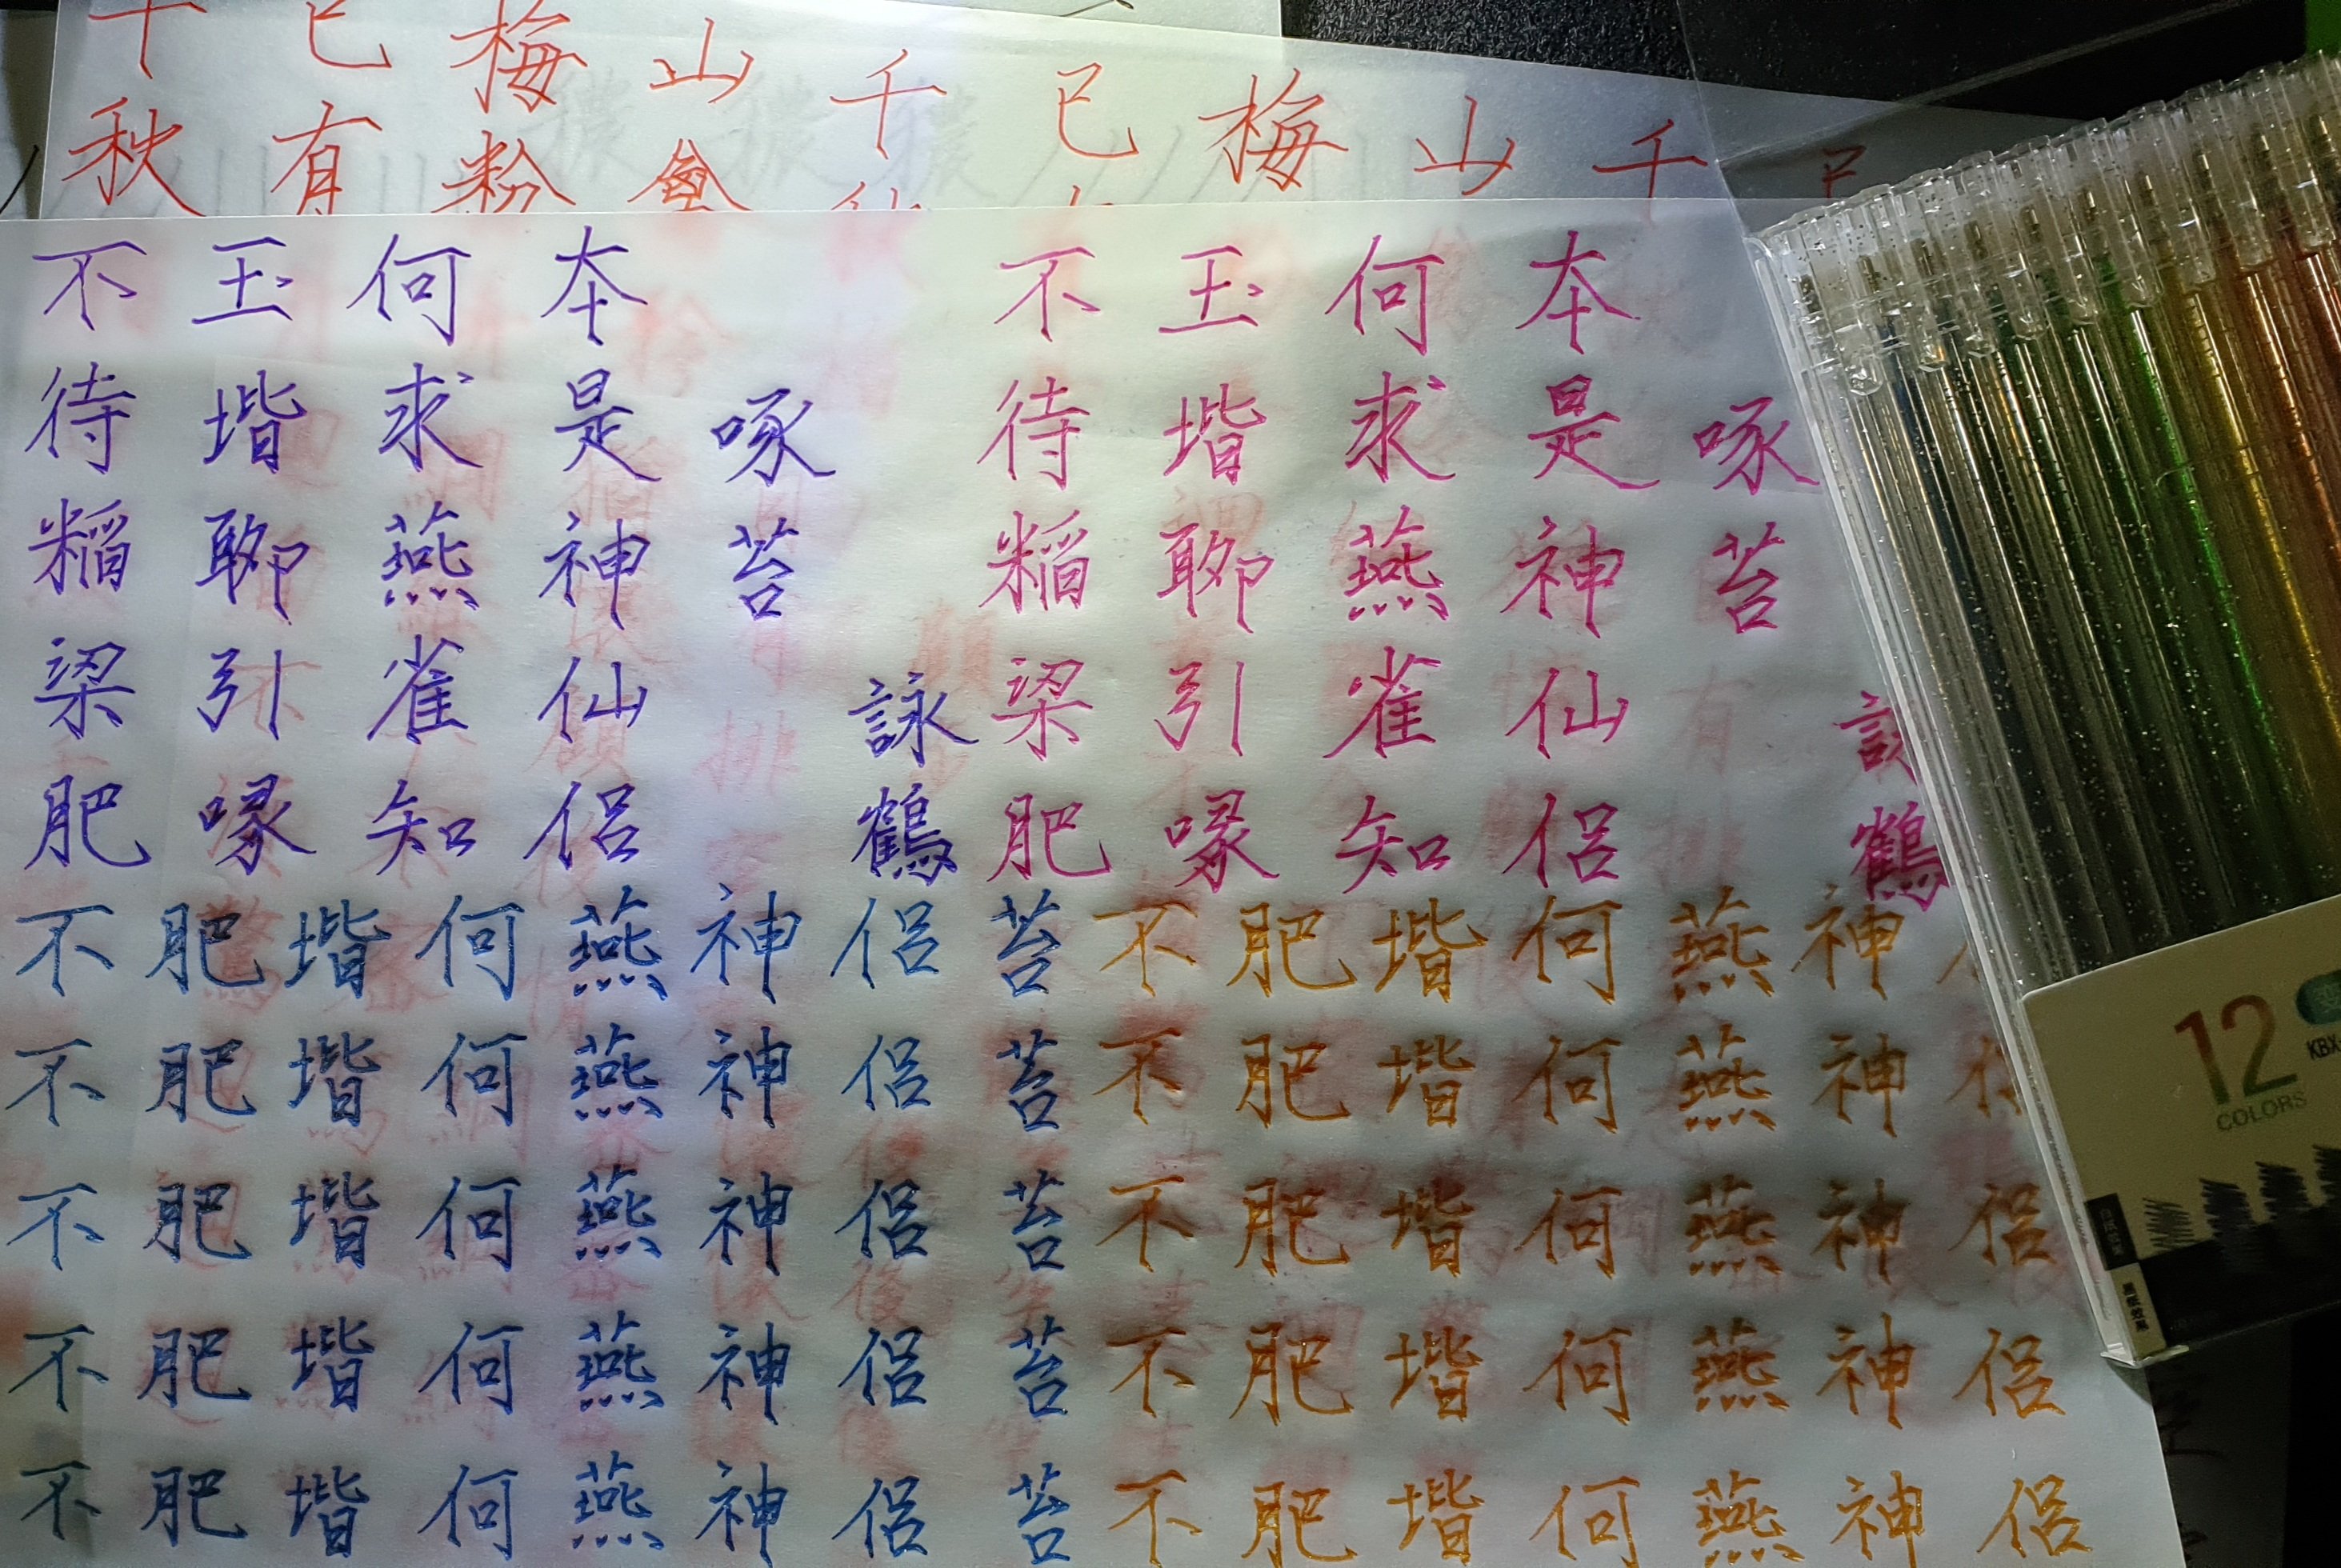 已
千
山
梅
已
千
山
梅粉
已有
千秋
詠鶴
啄苔
本是神仙侶
何求燕雀知
玉堦聊引喙
不待稻梁肥
詠鶴
啄苔
本是神仙侶
何求燕雀知
玉堦聊引喙
不待稻梁肥
不肥堦何燕神侶苔
不肥堦何燕神侶苔
不肥堦何燕神侶苔
不肥堦何燕神侶苔
不肥堦何燕神侶苔
不肥堦何燕神
不肥堦何燕神
不肥堦何燕神侶
不肥堦何燕神侶
不肥堦何燕神侶
12
COLORS
KBX